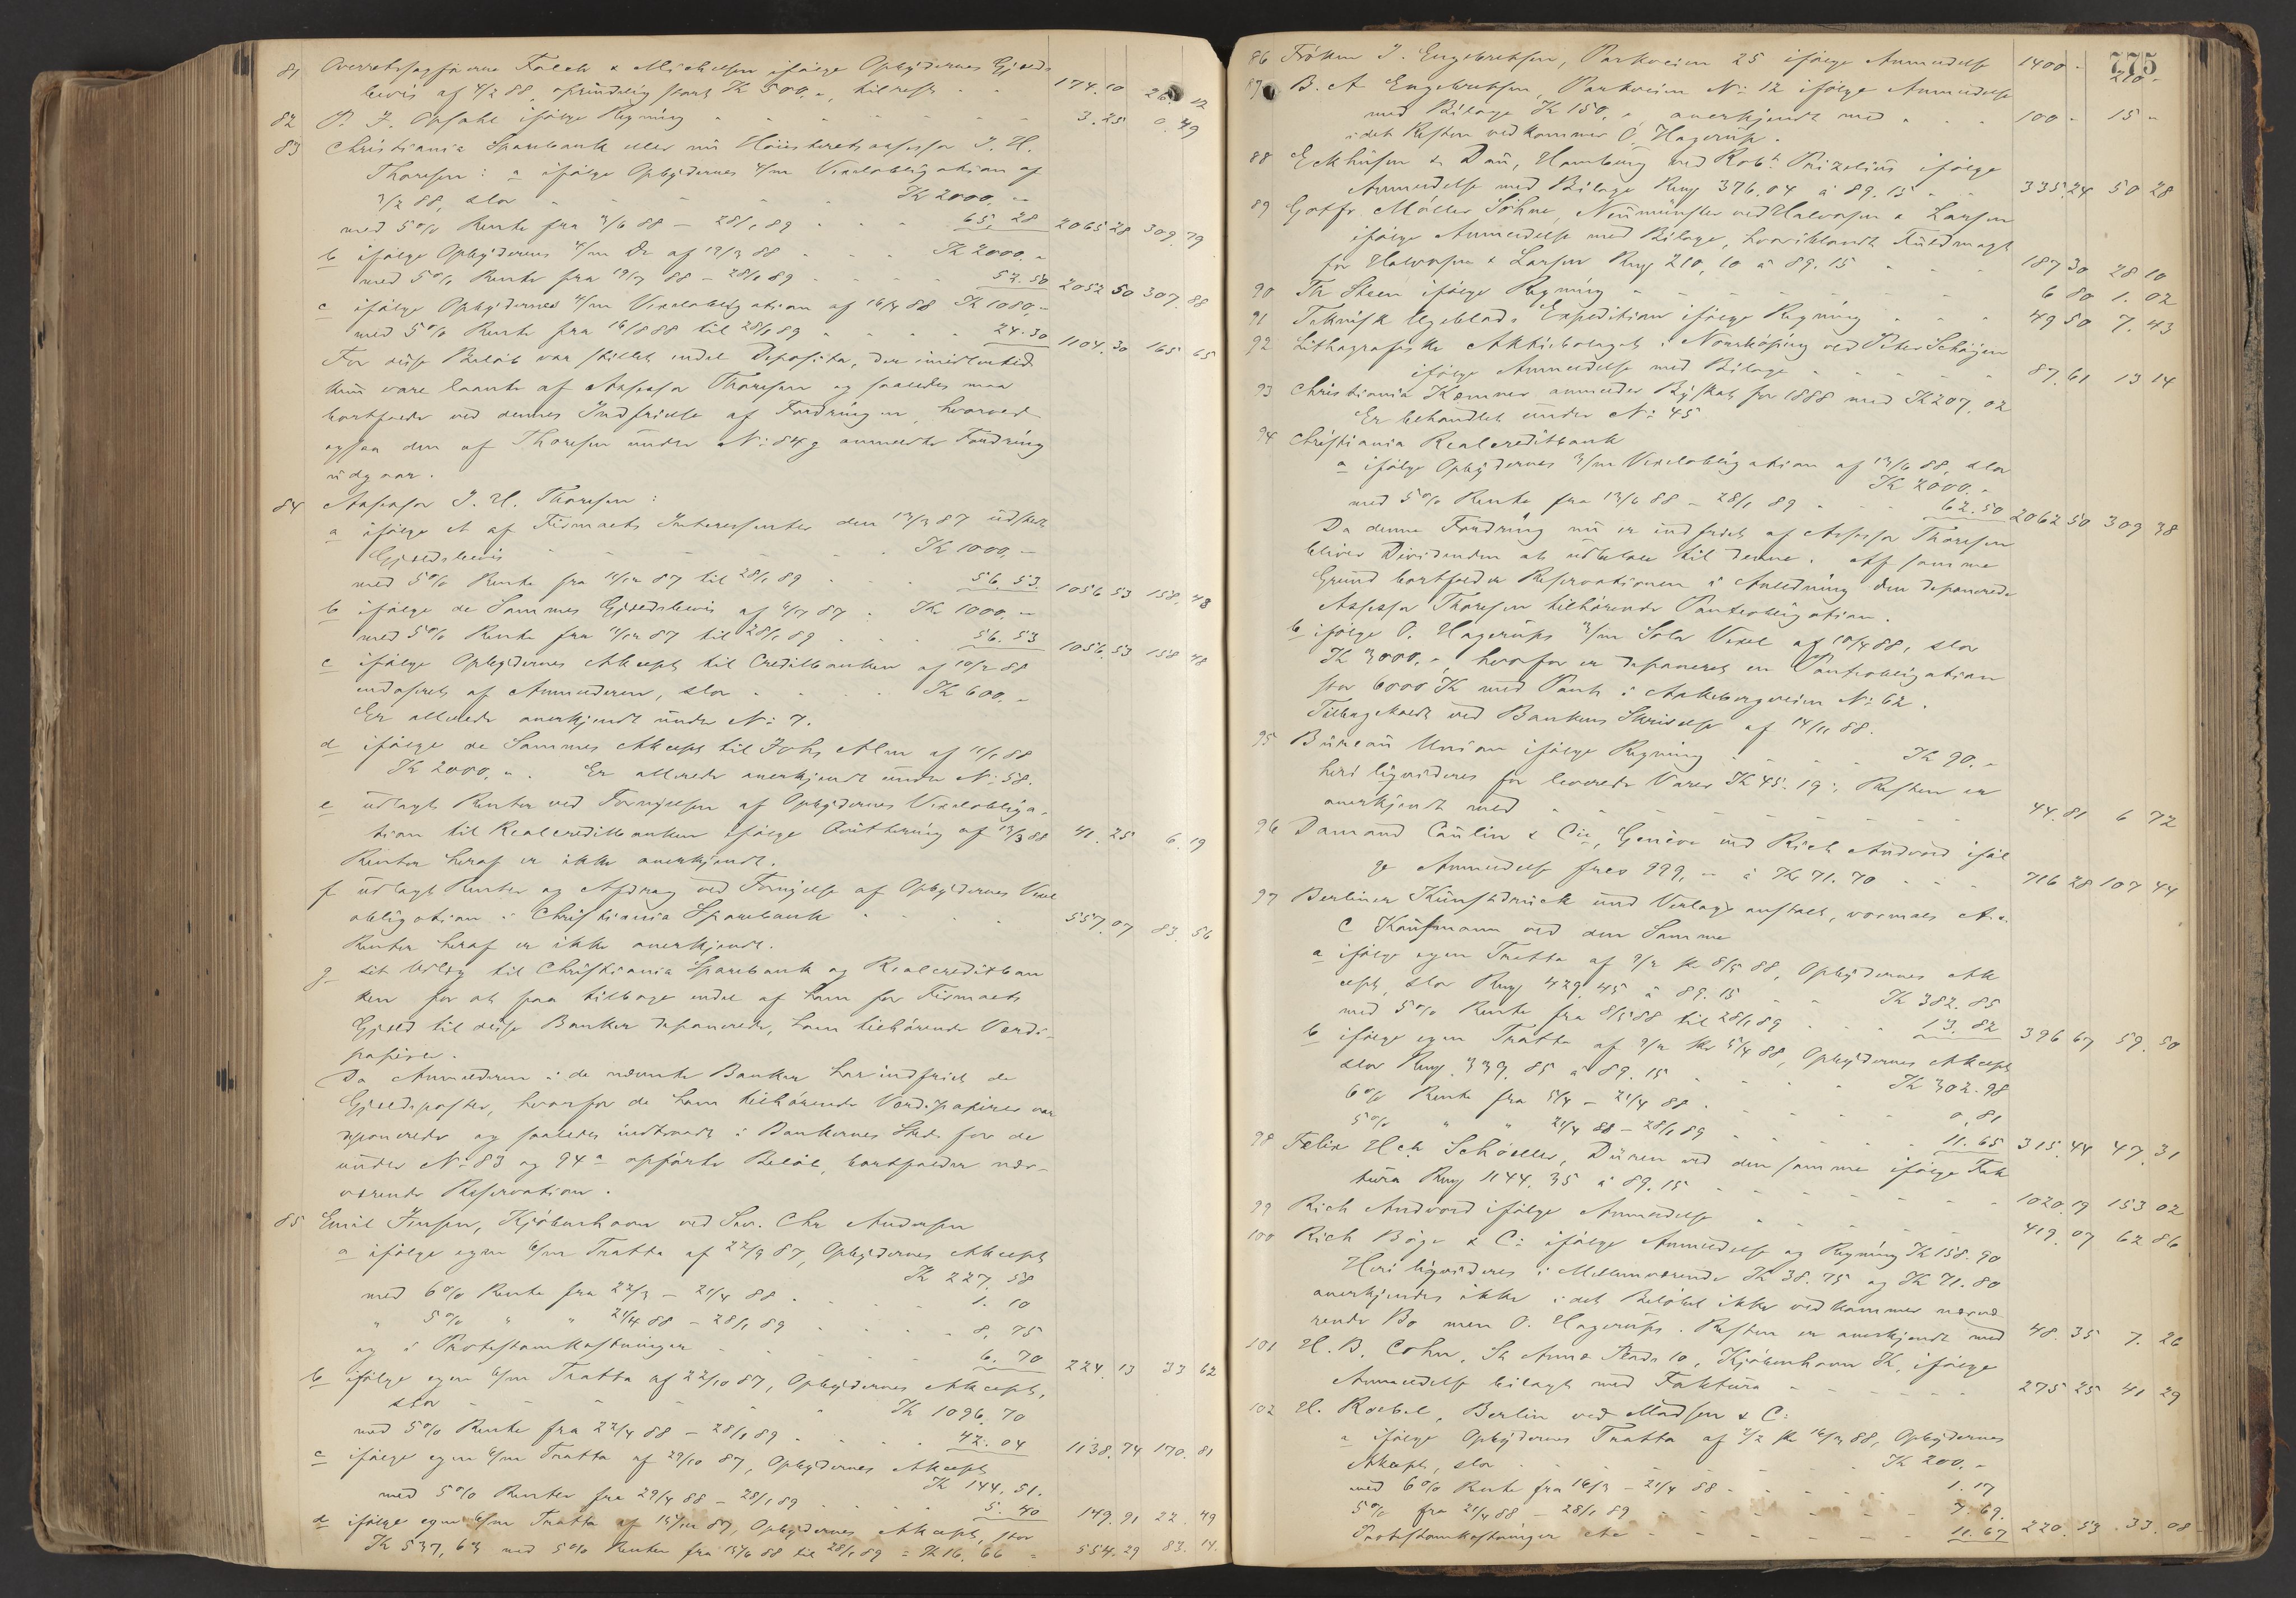 81 Overretssagfører Falch & Michelsen ifølge Opbydernes Gjælds
bevis af 4/2 88, oprindelig stort Kr 500,-, tilrest 174.10 26.12
82 P. J. Opsahl ifølge Regning 3.25 0.49
83 Christiania Sparebank eller nu Høiesteretsassessor J. H.
Thoresen: a ifølge Opbydernes 4/m Vexelobligation af
3/2 88, stor Kr 2000.-
med 5% Rente fra 3/6 88 - 28/1 89 65.28 2065.28 309.79
b ifølge Opbyderens 4/m Do af 19/3 88 Kr 2000.-
med 5% Rente fra 19/7 88 - 28/1 89 52.50 2052 50 307.88
c ifølge Opbydernes 4/m Vexelobligation af 16/4 88 Kr 1080,-
med 5% Rente fra 16/8 88 til 28/1 89 24.30 1104.30 165 65
For disse Beløb var stillet endel Deposita, der imidlertid
kun vare laante af Assessor Thoresen og saaledes maa
bortfalde ved dennes Indfrielse af Fordringen, hvorved
ogsaa den af Thoresen under No: 84g anmeldte Fordring
udgaar.
84 Assessor J. H. Thoresen:
a ifølge et af Firmaets Interessenter den 12/3 87 udstedt
Gjældsbevis Kr 1000,-
med 5% Rente fra 11/12 87 til 28/1 89 56.53. 1056 53 158.48
b ifølge de Sammes Gjældsbevis af 4/7 87 Kr 1000.-
med 5% Rente fra 11/12 87 til 28/1 89 56.53 1056.53 158 48
c ifølge Opbydernes Accept til Creditbanken af 10/2 88
endosseret af Anmelderen, stor Kr 600,-
Er allerede anerkjendt under No: 7.
d ifølge de Sammes Accept til Johs Alm af 11/1 88
Kr 2000,-. Er allerede anerkjendt under No: 58.
e udlagte Renter ved Fornyelsen af Opbydernes Vexelobliga-
tion til Realcreditbanken ifølge Qvittering af 13/3 88 41.25 6.19
Renter heraf er ikke anerkjendt.
f udlagte Renter og Afdrag ved Fornyelse af Opbydernes Vexel
obligation i Christiania Sparebank 557.07 83.56
Renter heraf er ikke anerkjendt.
g sit Udlæg til Christiania Sparebank og Realcreditban
ken for at faa tilbage endel af ham for Firmaets
Gjæld til disse Banker deponerede, ham tilhørende Værdi-
papirer.
Da Anmelderen i de nævnte Banker har indfriet de
Gjældsposter, hvorfor de ham tilhørende Værdipapirer var
deponerede og saaledes indtraadt i Bankernes Sted for de
under No 83 og 94a opførte Beløb, bortfalder nær-
værende Reservation.
85 Emil Jensen, Kjøbenhavn ved Sev. Chr Andersen
a ifølge egen 6/m Tratta af 22/9 87, Opbydernes Accept
Kr 227.58
med 6% Rente fra 22/3 - 21/4 88 1.10
" 5% " " 21/4 88 - 28/1 89 8.75
og i Protestomkostninger 6.70 224.13 33 62
b ifølge egen 6/m Tratta af 22/10 87, Opbydernes Accept,
stor Kr 1096.70
med 5% Rente fra 22/4 88 - 28/1 89 42.04 1138.74 170.81
c ifølge egen 6/m Tratta af 29/10 87, Opbydernes Accept
Kr 144.51.
med 5% Renter fra 29/4 88 - 28/1 89 5.40 149.91 22.49
d ifølge egen 6/m Tratta af 15/12 87, Opbydernes Accept, stor
Kr 537,63 med 5% Renter fra 15/6 88 til 28/1 89 = Kr 16.66 554.29 83.14.
775
86 Frøken J. Engebretsen, Parkveien 25 ifølge Anmeldelse 1400 - 210 -
87 B. A Engebretsen, Parkveien No: 12 ifølge Anmeldelse
med Bilage Kr 150,-, anerkjendt med 100 - 15 -
idet Resten vedkommer O. Hagerup.
88 Eckhusen & Dau, Hamburg ved Robt Prizelius ifølge
Anmeldelse med Bilage Rmg 376.04 à 89.15 335.24 50 28
89 Gottfr. Møller Söhne, Neumünster ved Halvorsen & Larsen
ifølge Anmeldelse med Bilage, hvoriblandt Fuldmagt
for Halvorsen & Larsen Rmg 210,10 à 89.15 187 30 28 10
90 Th Steen ifølge Regning 6 80 1.02
91 Teknisk Ugeblads Expedition ifølge Regning 49 50 7.43
92 Lithografiske Aktiebolaget i Norrköping ved Peter Schøyen
ifølge Anmeldelse med Bilage 87.61 13 14
93 Christiania Kæmner anmelder Byskat for 1888 med Kr 207.02
Er behandlet under No: 45
94 Christiania Realcreditbank
a ifølge Opbydernes 3/m Vexelobligation af 13/6 88, stor
Kr 2000.-
med 5% Rente fra 13/6 88 - 28/1 89 62.50 2062 50 309 38
Da denne Fordring nu er indfriet af Assessor Thoresen
bliver Dividenden at udbetale til denne. Af samme
Grund bortfalder Reservationen i Anledning den deponerede
Assessor Thoresen tilhørende Panteobligation.
b ifølge O. Hagerups 3/m Sola Vexel af 18/4 88, stor
Kr 3000,-, hvorfor er deponeret en Panteobligation
stor 6000 Kr med Pant i Akebergveien No: 62.
Tilbagekaldt ved Bankens Skrivelse af 14/11 88.
95 Bureau Union ifølge Regning Kr 90.-
heri ligvideres for leverede Varer Kr 45.19; Resten er
anerkjendt med 44.81 6 72
96 Damand Caulin & Cie, Genève ved Rich Andvord iføl
ge Anmeldelse frcs 999.- à Kr 71.70 716 28 107 44
97 Berliner Kunstdruck und Verlagsanstalt, vormals A. &
C Kaufmann ved den Samme
a ifølge egen Tratta af 9/2 pr 8/5 88, Opbydernes Ak
cept, stor Rmg 429.45 à 89.15 Kr 382.85
med 5% Rente fra 8/5 88 til 28/1 89 13.82 396 67 59.50
b ifølge egen Tratta af 9/2 pr 5/4 88, Opbydernes Accept
stor Rmg 339.85 à 89.15 Kr 302.98
6% Rente fra 5/4 - 21/4 88 0.81
5% " " 21/4 88 - 28/1 89 11.65 315.44 47.31
98 Felix Hch Schoeller, Düren ved den samme ifølge Fak
tura Rmg 1144.35 à 89.15 1020.19 153 02
99 Rich Andvord ifølge Anmeldelse 419.07 62 86
100 Rich Bøge & Co: ifølge Anmeldelse og Regning Kr 158.90
Heri ligvideres i Mellemværende Kr 38.75 og Kr 71.80
anerkjendes ikke idet Beløbet ikke vedkommer nærvæ
rende Bo men O. Hagerups. Resten er anerkjendt med 48.35 7.26
101 H. B. Cohn, St Annæ Plads 10, Kjøbenhavn K, ifølge
Anmeldelse bilagt med Faktura 275 25 41 29
102 H. Roebel, Berlin ved Madsen & Co:
a ifølge Opbydernes Tratta af 2/2 pr 16/3 88, Opbydernes
Accept, stor Kr 200.-
med 6% Rente fra 16/3 - 21/4 88 1.17
5% fra 21/4 88 - 28/1 89 7.69.
Protestomkostninger etc 11.67 220.53 33.08